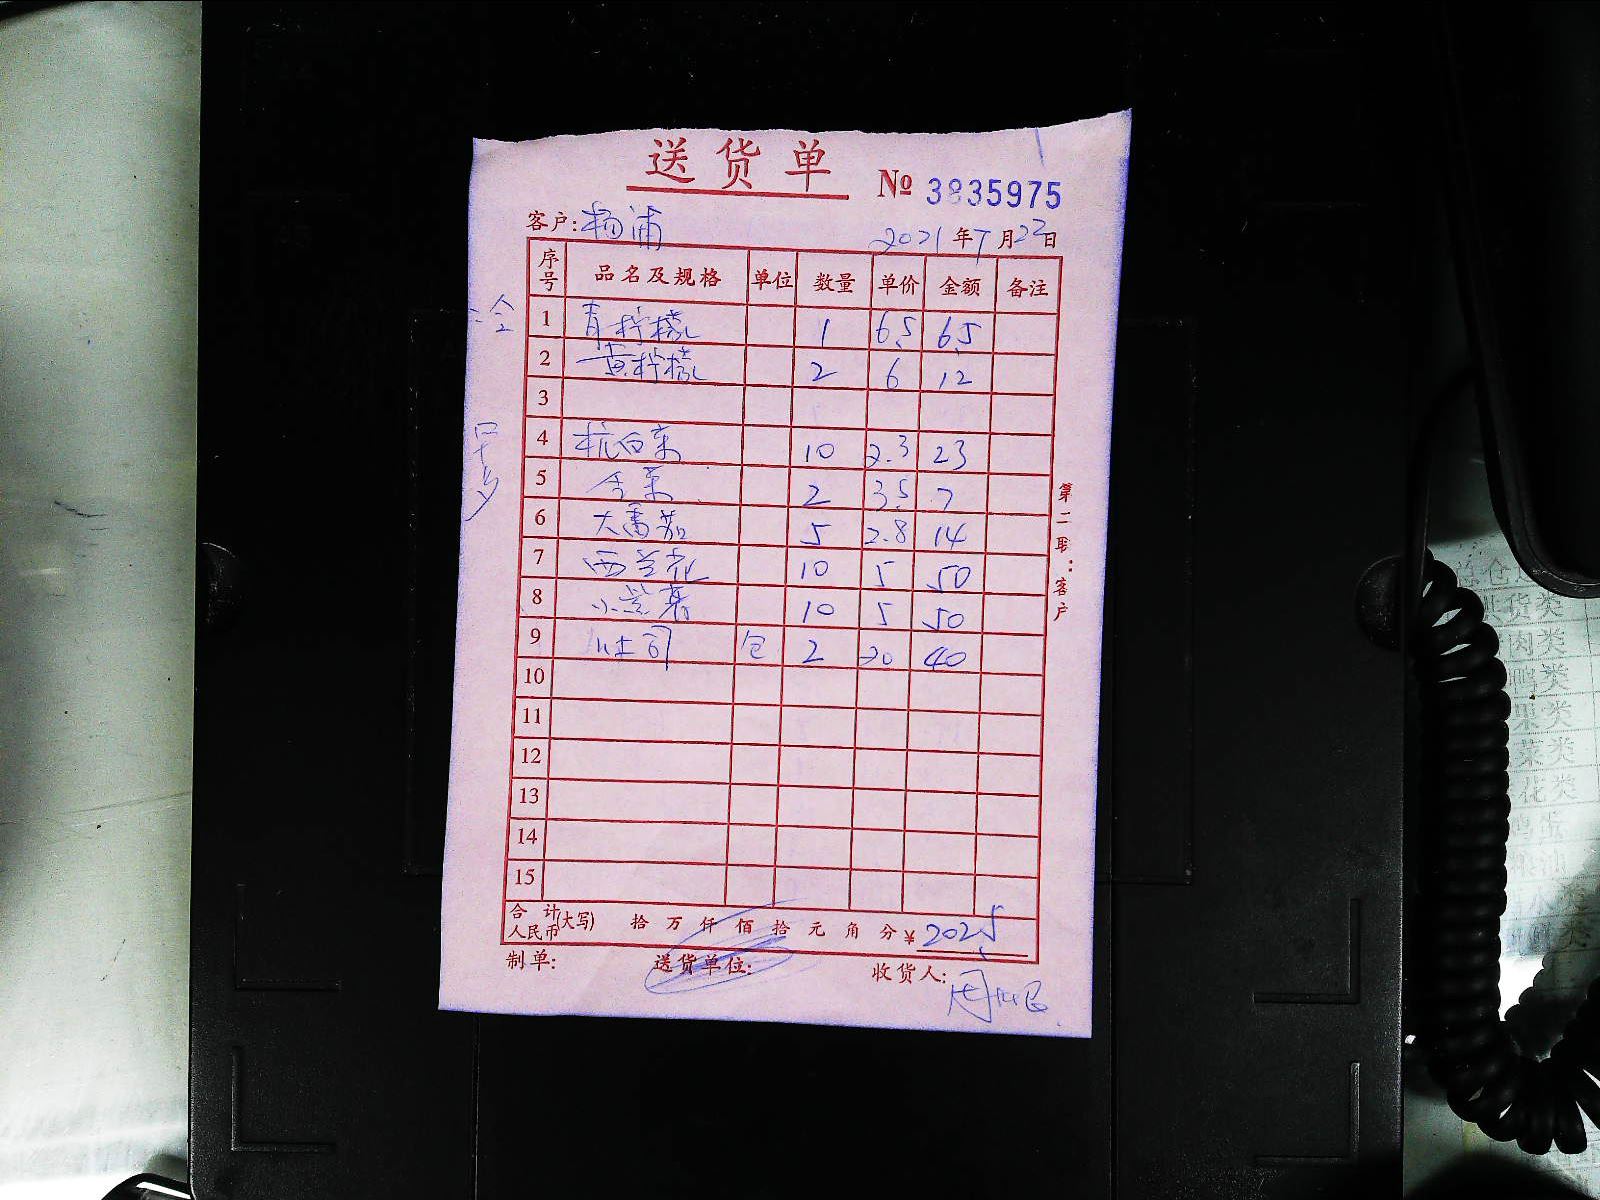 送货单
№ 3835975
客户: 杨浦 2021年7月22日
序号 品名及规格 单位 数量 单价 金额 备注
1 青柠檬 1 6.5 6.5
2 黄柠檬 2 6 12
3
4 杭白菜 10 2.3 23
5 2 3.5 7
6 大番茄 5 2.8 14
7 西兰花 10 5 50
8 小紫薯 10 5 50
9 吐司 包 2 20 40
10
11
12
13
14
15
合计人民币(大写) 拾 万 仟 佰 拾 元 角 分 ¥ 202.5
制单: 送货单位: 收货人:
第二联:客户
供货类
肉类
鸭类
果类
菜类
花类